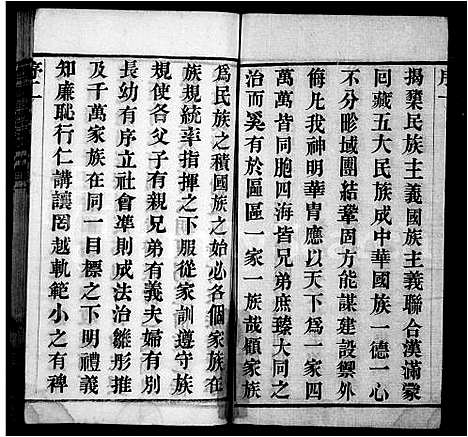 序一
揭櫫民族主義國族主義聯合漢滿蒙
回藏五大民族成中華國族一德一心
不分畛域團結鞏固方能謀建設禦外
侮凡我神明華胄應以天下為一家四
萬萬皆同胞四海皆兄弟庶臻大同之
治而奚有於區區一家一族哉顧家族
為民族之積國族之始必各個家族在
族規統率指揮之下服從家訓遵守族
規使各父子有親兄弟有義夫婦有別
長幼有序立社會準則成法治雛形推
及千萬家族在同一目標之下明禮義
知廉恥行仁講讓罔越軌範小之有裨
序二